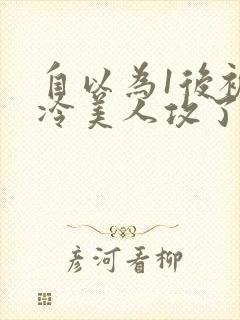 自以為1後被
冷美人攻了
彦河看柳